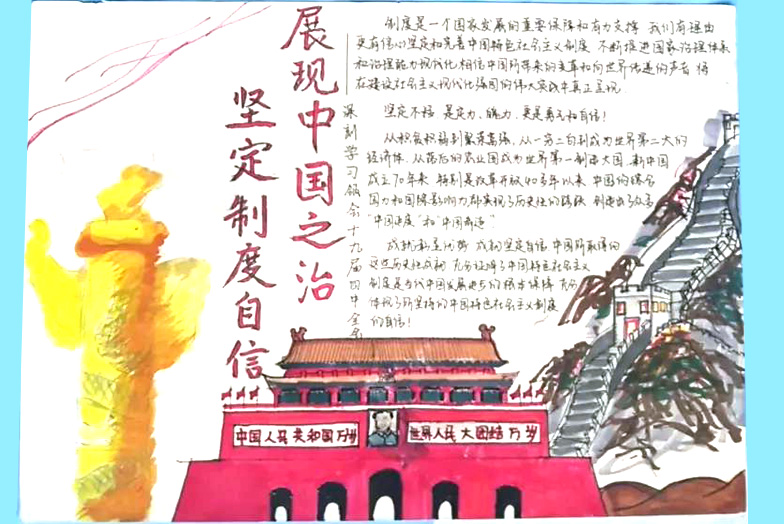 展现中国之治
坚定制度自信
深刻学习领会十九届四中全会
制度是一个国家发展的重要保障和有力支撑 我们有理由
更有信心坚定和完善中国特色社会主义制度 不断推进国家治理体系
和治理能力现代化 相信中国所带来的变革和向世界传递的声音 将
在建设社会主义现代化强国的伟大实践中真正呈现
坚定不移 是定力、魄力、更是勇气和自信！
从积贫积弱到繁荣富强，从一穷二白到成为世界第二大的
经济体，从落后的农业国成为世界第一制造大国 新中国
成立70年来 特别是改革开放40多年以来 中国的综合
国力和国际影响力都实现了历史性的跨越 创造出了众多
“中国速度”和“中国奇迹”
成就彰显优势 成就坚定自信 中国所取得的
这些历史性成就 充分证明了中国特色社会主义
制度是当代中国发展进步的根本保障 充分
体现了所坚持的中国特色社会主义制度
的自信！
中国人民共和国万岁
世界人民大团结万岁